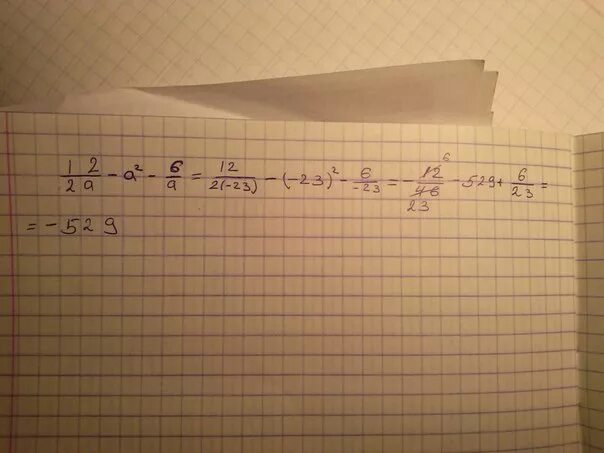 12/2a - a² - 6/a = 12/2(-23) - (-23)² - 6/-23 = - 12 6/46 23 - 529 + 6/23 =
= - 529